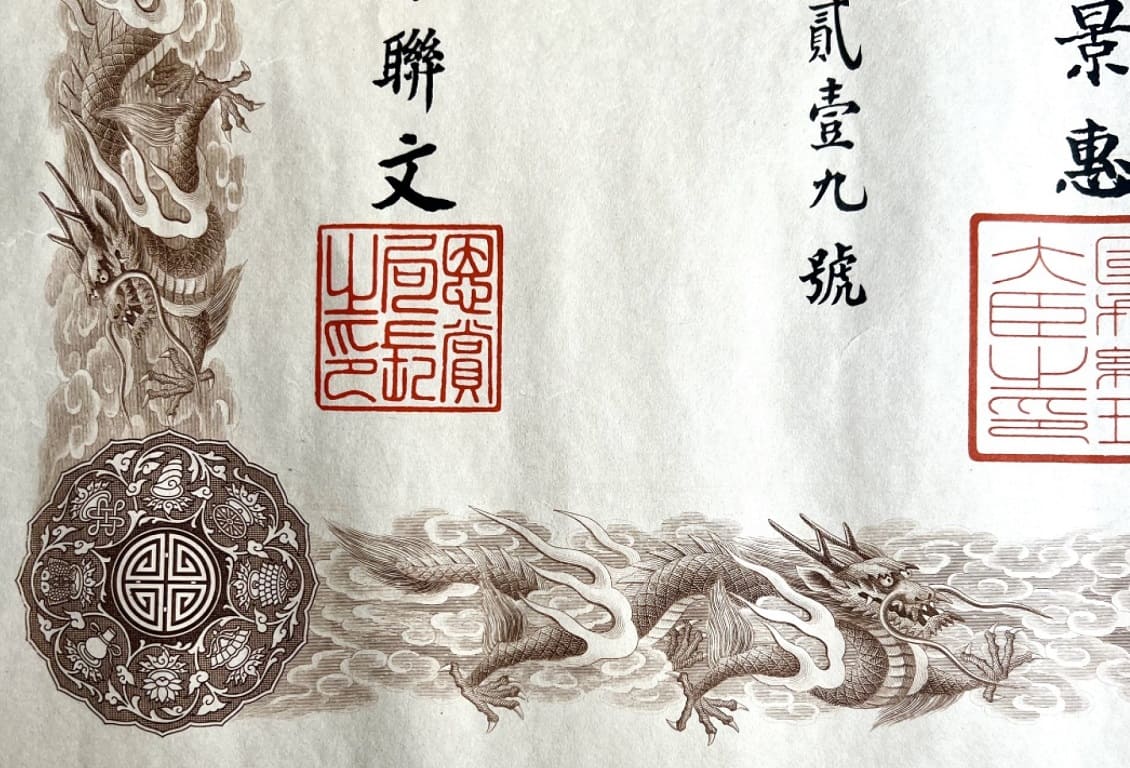 景惠
國務總理
大臣之印
貳壹九號
聯文
恩賞
局長
之印